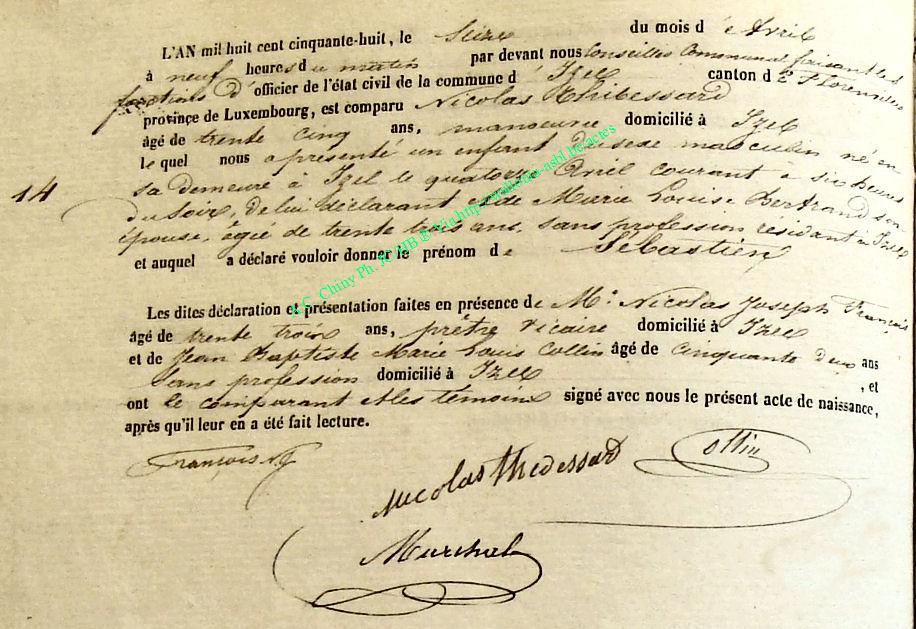 L'AN mil huit cent cinquante-huit, le Seize du mois d'Avril
à neuf heures du matin par devant nous Conseiller Communal faisant les
fonctions d'officier de l'état civil de la commune d'Izel canton de Florenville
province de Luxembourg, est comparu Nicolas Thibessard
âgé de trente cinq ans, manoeuvre domicilié à Izel
lequel nous a présenté un enfant du sexe masculin né en
14
sa demeure à Izel le quatorze Avril courant à six heures
du soir, de lui déclarant et de Marie Louise Bertrand son
épouse, âgée de trente trois ans, sans profession résidant à Izel
et auquel a déclaré vouloir donner le prénom de Sébastien
Les dites déclaration et présentation faites en présence de Mr. Nicolas Joseph François
âgé de trente trois ans, prêtre vicaire domicilié à Izel
et de Jean Baptiste Marie Louis Collin âgé de cinquante deux ans
sans profession domicilié à Izel , et
ont le comparant et les témoins signé avec nous le présent acte de naissance,
après qu'il leur en a été fait lecture.
François N.J
Nicolas thedessard
Collin
Marchal
A.G. Chiny Ph. via asbl.be/actes